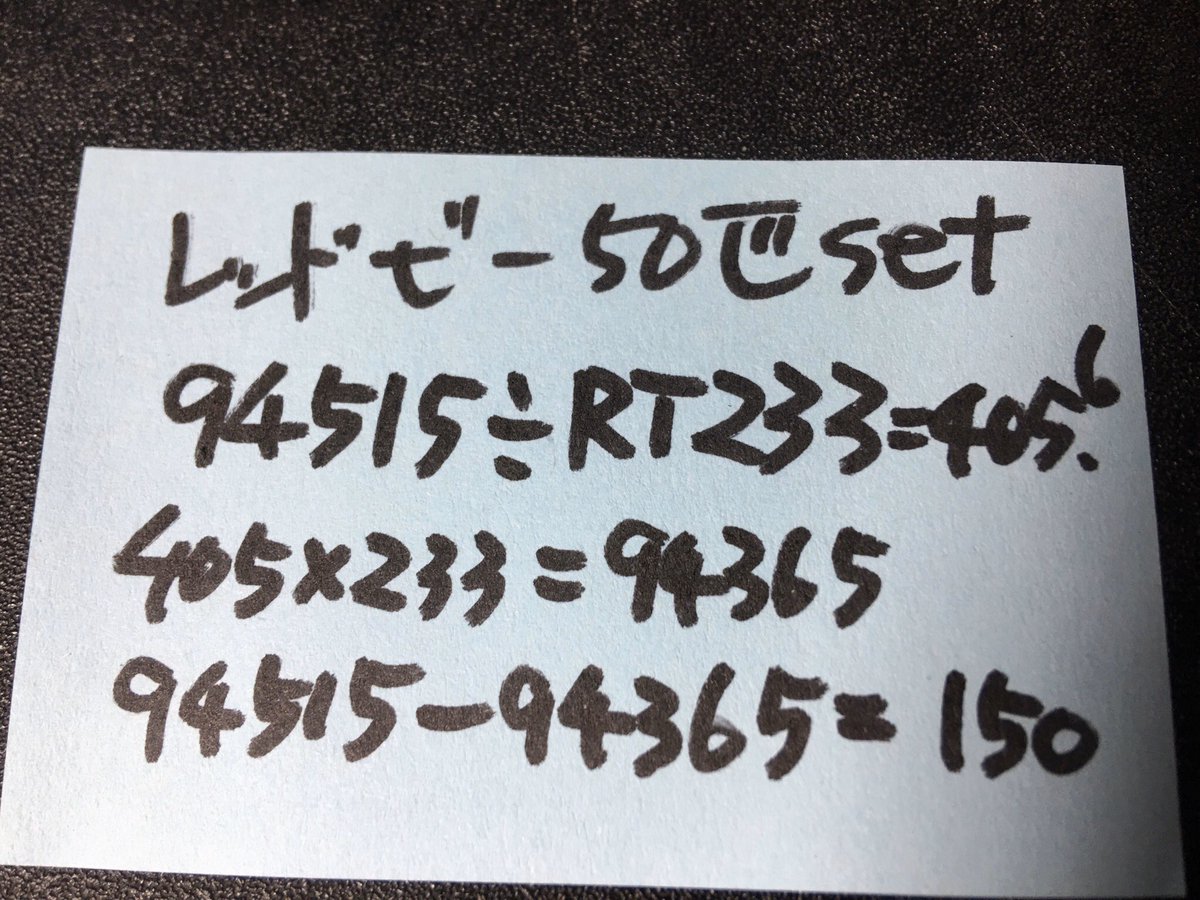 レッドビー50匹set
94515÷RT233=405.6
405×233=94365
94515-94365=150